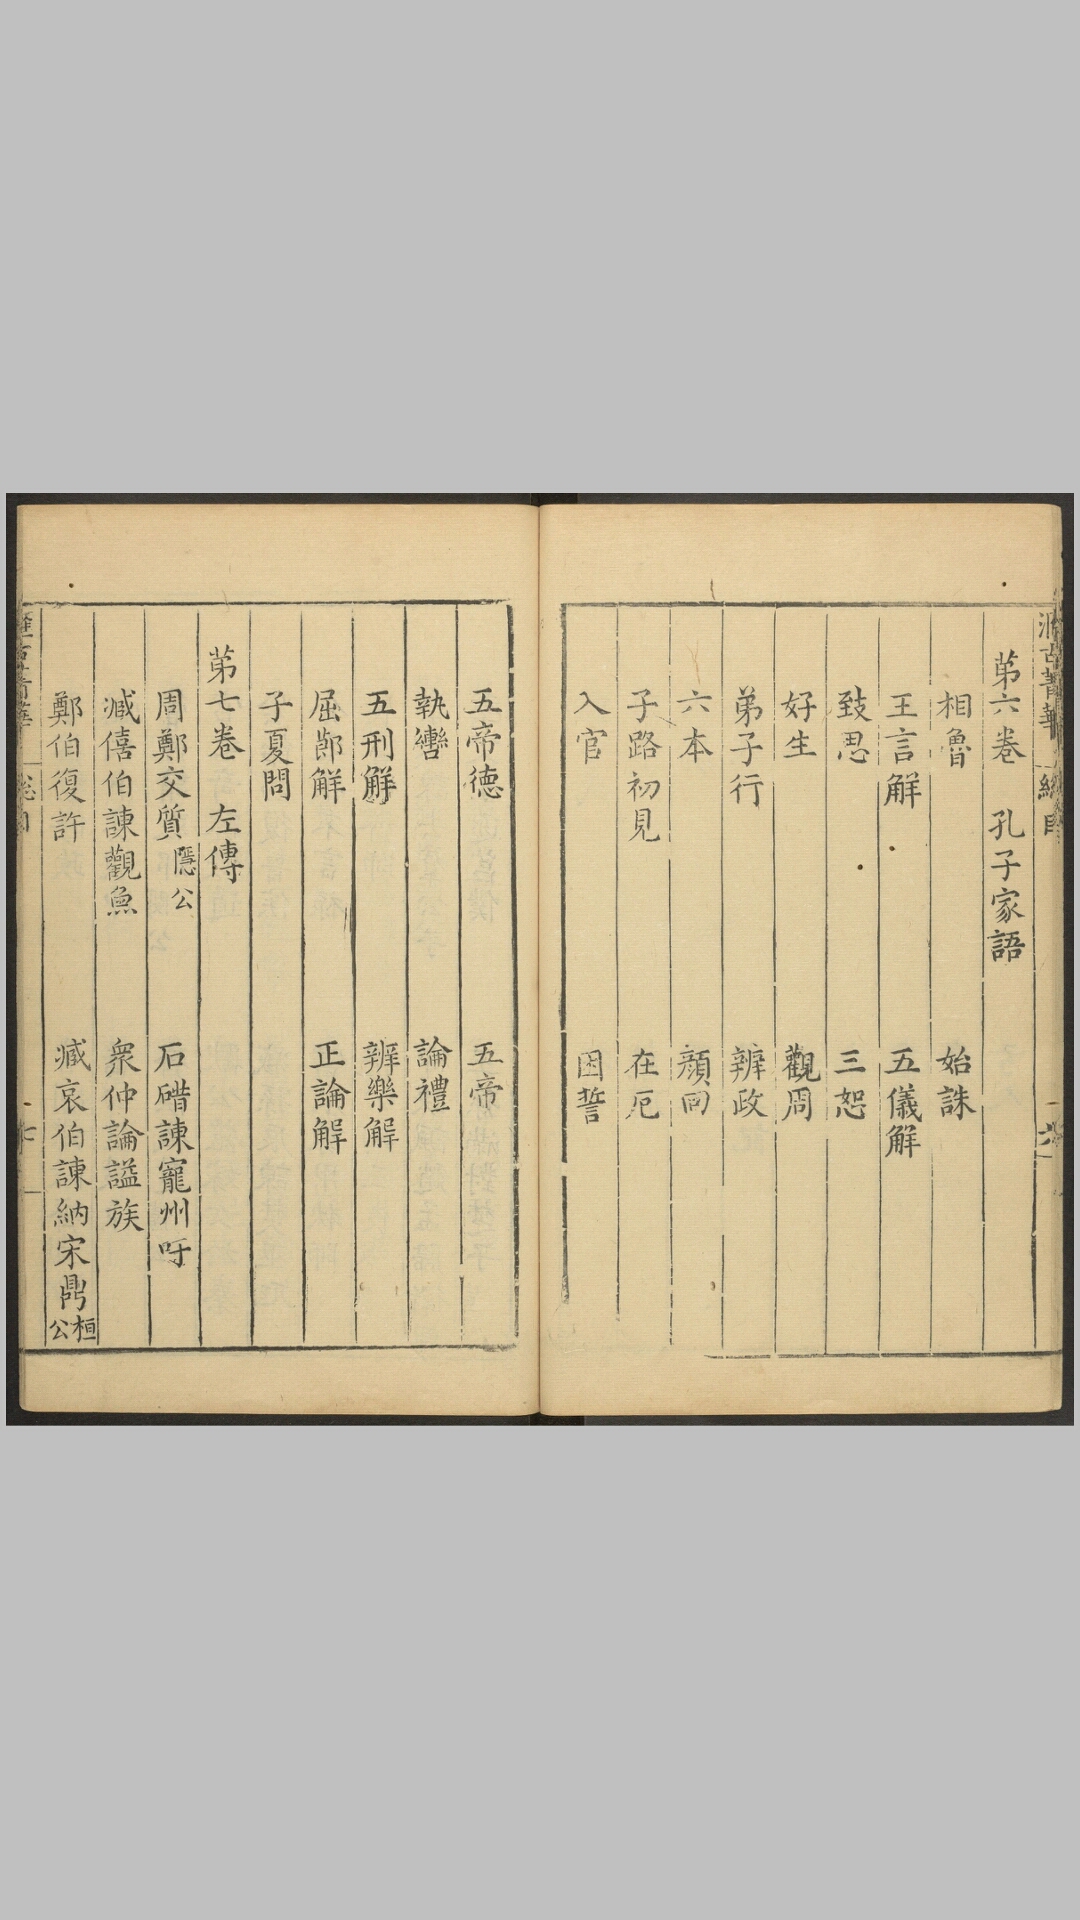 第六卷　孔子家語
相魯　始誅
王言解　五儀解
致思　三恕
好生　觀周
弟子行　辨政
六本　顏回
子路初見　在厄
入官　困誓
五帝德　五帝
執轡　論禮
五刑解　辨樂解
屈節解　正論解
子夏問
第七卷　左傳
周鄭交質隱公　石碏諫寵州吁
臧僖伯諫觀魚　衆仲論謚族
鄭伯復許　臧哀伯諫納宋鼎桓公